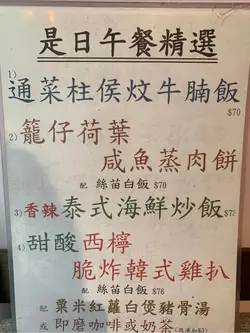 是日午餐精選
1)
通菜柱侯炆牛腩飯
$70
2) 籠仔荷葉
咸魚蒸肉餅
配 絲苗白飯 $70
3) 香辣泰式海鮮炒飯$73
4) 甜酸西檸
脆炸韓式雞扒
配 絲苗白飯 $76
配 粟米紅蘿白煲豬骨湯
或 即磨咖啡或奶茶